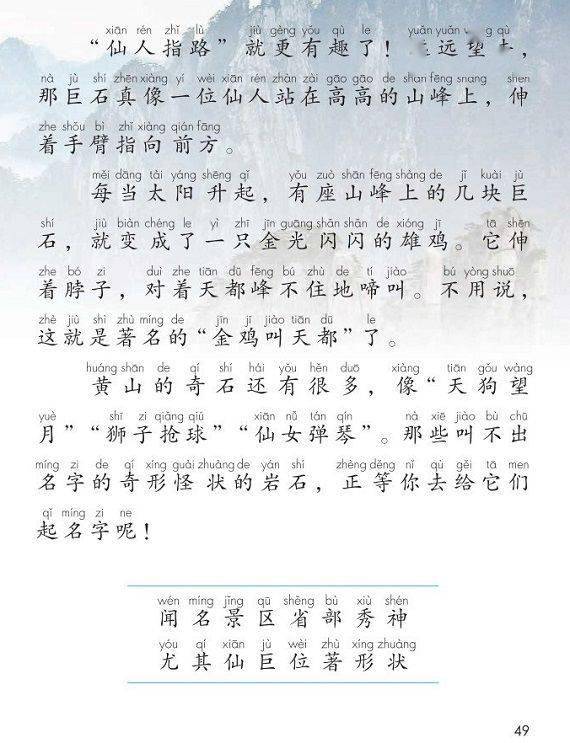 xiān rén zhǐ lù jiù gèng yǒu qù le yuǎn yuǎn qù
“仙人指路”就更有趣了！远望，
nà jù shí zhēn xiàng yí wèi xiān rén zhàn zài gāo gāo de shān fēng shang shēn
那巨石真像一位仙人站在高高的山峰上，伸
zhe shǒu bì zhǐ xiàng qián fāng
着手臂指向前方。
měi dāng tài yáng shēng qǐ yǒu zuò shān fēng shàng de jǐ kuài jù
每当太阳升起，有座山峰上的几块巨
shí jiù biàn chéng le yì zhī jīn guāng shǎn shǎn de xióng jī tā shēn
石，就变成了一只金光闪闪的雄鸡。它伸
zhe bó zi duì zhe tiān dū fēng bú zhù de tí jiào bú yòng shuō
着脖子，对着天都峰不住地啼叫。不用说，
zhè jiù shì zhù míng de jīn jī jiào tiān dū le
这就是著名的“金鸡叫天都”了。
huáng shān de qí shí hái yǒu hěn duō xiàng tiān gǒu wàng
黄山的奇石还有很多，像“天狗望
yuè shī zi qiǎng qiú xiān nǚ tán qín nà xiē jiào bù chū
月”“狮子抢球”“仙女弹琴”。那些叫不出
míng zi de qí xíng guài zhuàng de yán shí zhèng děng nǐ qù gěi tā men
名字的奇形怪状的岩石，正等你去给它们
qǐ míng zi ne
起名字呢！
wén míng jǐng qū shěng bù xiù shén
闻名景区省部秀神
yóu qí xiān jù wèi zhù xíng zhuàng
尤其仙巨位著形状
49